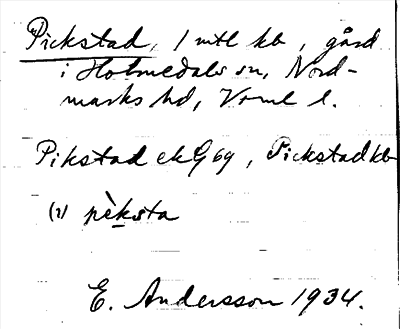 Pickstad, 1 mtl kb, gård
i Holmedals sn, Nord-
marks hd, Vrml l.
Pikstad ek G 69, Pickstad kb
(1) pèksta
E. Andersson 1934.